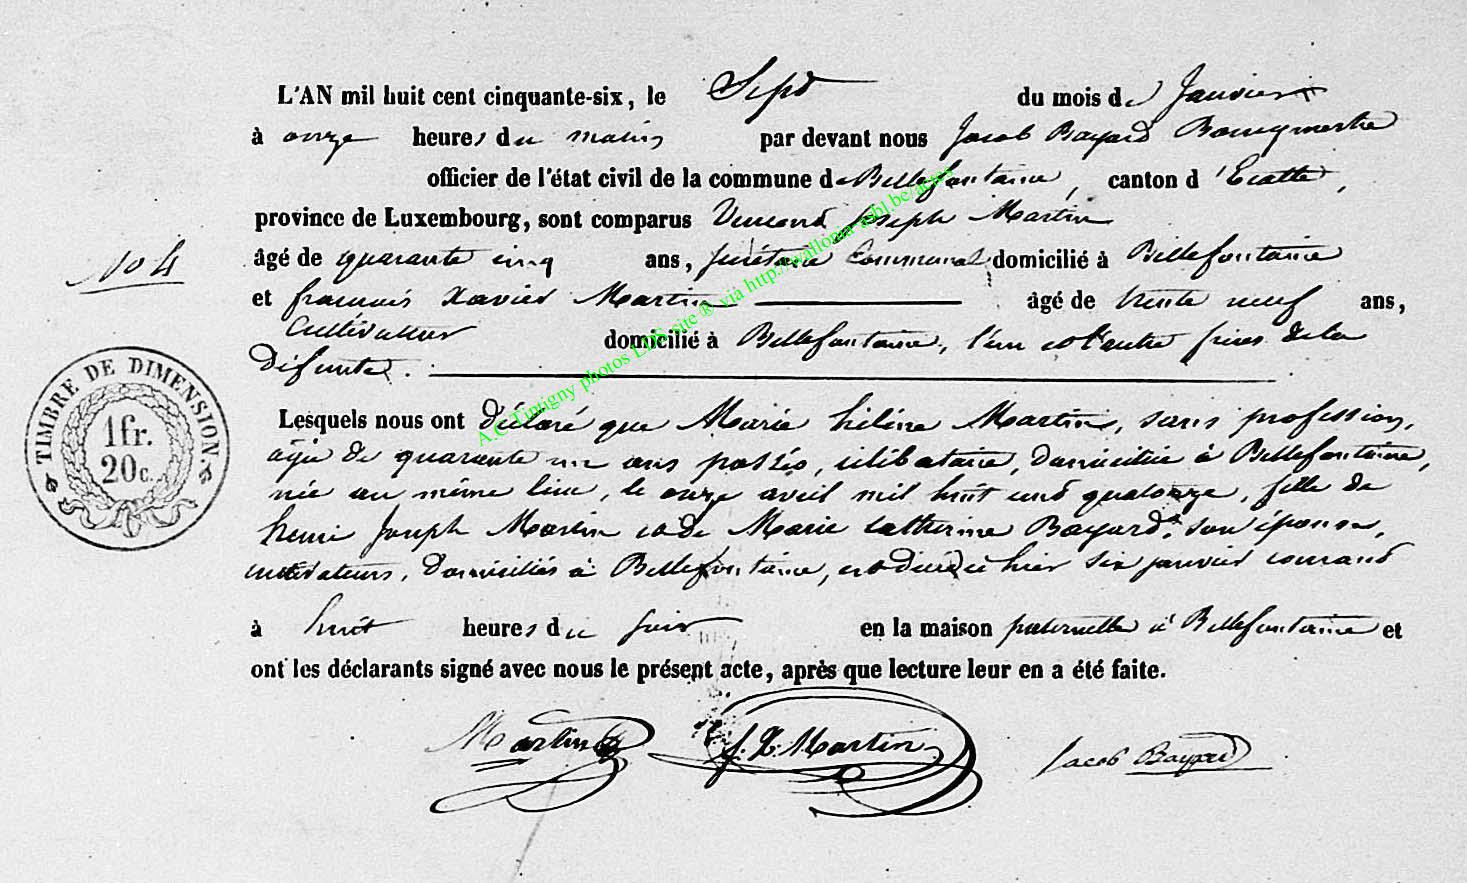 L'AN mil huit cent cinquante-six, le Sept du mois de Janvier
à onze heures du matin par devant nous Jacob Bayard Bourgmestre
officier de l'état civil de la commune de Bellefontaine, canton d'Etalle,
province de Luxembourg, sont comparus Vincent Joseph Martin
104
âgé de quarante cinq ans, secrétaire Communal domicilié à Bellefontaine
et françois Xavier Martin âgé de trente neuf ans,
Cultivateur domicilié à Bellefontaine, l'un et l'autre frères de la
Défunte.
TIMBRE DE DIMENSION
1fr.
20c.
Lesquels nous ont déclaré que Marie hélène Martin, sans profession,
âgée de quarante un ans passés, célibataire, domiciliée à Bellefontaine,
née au même lieu, le onze avril mil huit cent quatorze, fille de
henri Joseph Martin et de Marie Catherine Bayard, son épouse,
cultivateurs, domiciliés à Bellefontaine, est décédée hier six janvier courant
à huit heures du soir en la maison paternelle à Bellefontaine et
ont les déclarants signé avec nous le présent acte, après que lecture leur en a été faite.
Martin f. X. Martin Jacob Bayard
A.C. Tintigny photos LDS site ® via http://wallonia-asbl.be/actes